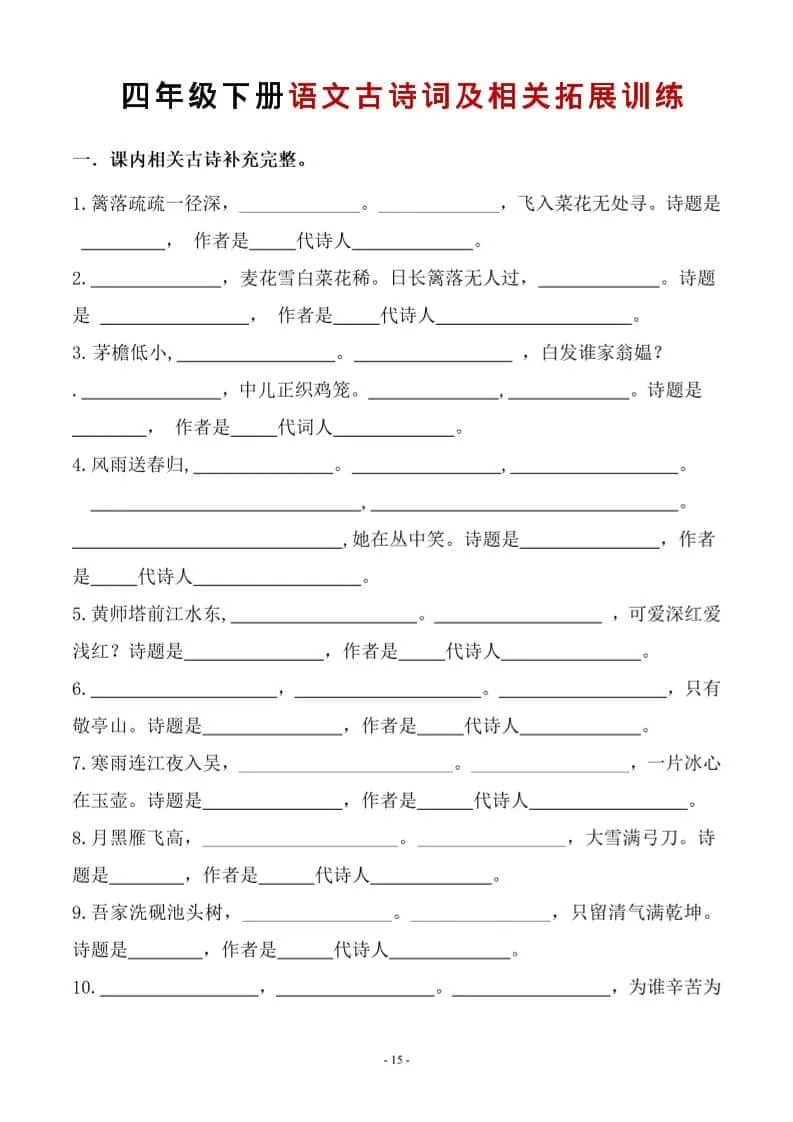 四年级下册语文古诗词及相关拓展训练
一．课内相关古诗补充完整。
1.篱落疏疏一径深，____________。____________，飞入菜花无处寻。诗题是
_________， 作者是_____代诗人_____________。
2.______________，麦花雪白菜花稀。日长篱落无人过，_____________。诗题
是 ________________， 作者是_____代诗人_____________________。
3. 茅檐低小,_________________。_________________ ，白发谁家翁媪？
._______________，中儿正织鸡笼。______________,_____________。诗题是
________， 作者是_____代词人_____________。
4.风雨送春归,_______________。________________,__________________。
_____________________________,_________________________________。
_____________________________,她在丛中笑。诗题是_______________，作者
是_____代诗人__________________。
5.黄师塔前江水东,____________________。_________________ ，可爱深红爱
浅红？诗题是_______________，作者是_____代诗人_______________。
6.____________________，____________________。__________________，只有
敬亭山。诗题是_______________，作者是_____代诗人_____________。
7.寒雨连江夜入吴，_____________________。_______________，一片冰心
在玉壶。诗题是_______________，作者是_____代诗人_________________。
8.月黑雁飞高，___________________。______________，大雪满弓刀。诗
题是________，作者是______代诗人____________。
9.吾家洗砚池头树，_______________。______________，只留清气满乾坤。
诗题是________，作者是______代诗人_____________。
10._________________，_________________。_________________，为谁辛苦为
- 15 -